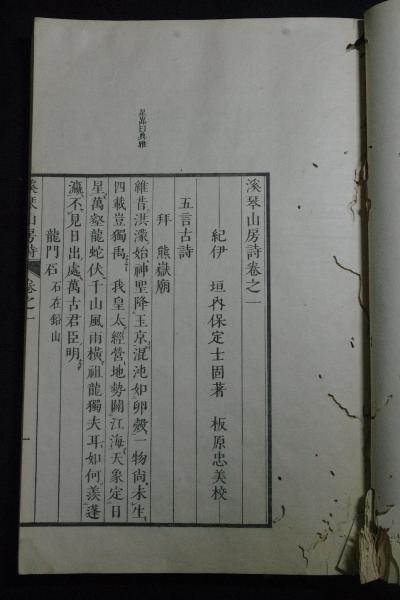 星萬曰典雅
溪琴山房詩卷之一
紀伊 垣內保定士固著 板原忠美校
五言古詩
拜熊嶽廟
維昔洪濛始神聖降玉京混沌如卵殼一物尚未生
四載豈獨禹我皇太經營地勢闢江海天象定日
星萬壑龍蛇伏千山風雨橫祖龍獨夫耳如何羨蓬
瀛不見日出處萬古君臣明
龍門石 石在鉛山
溪琴山房詩 卷之一 一